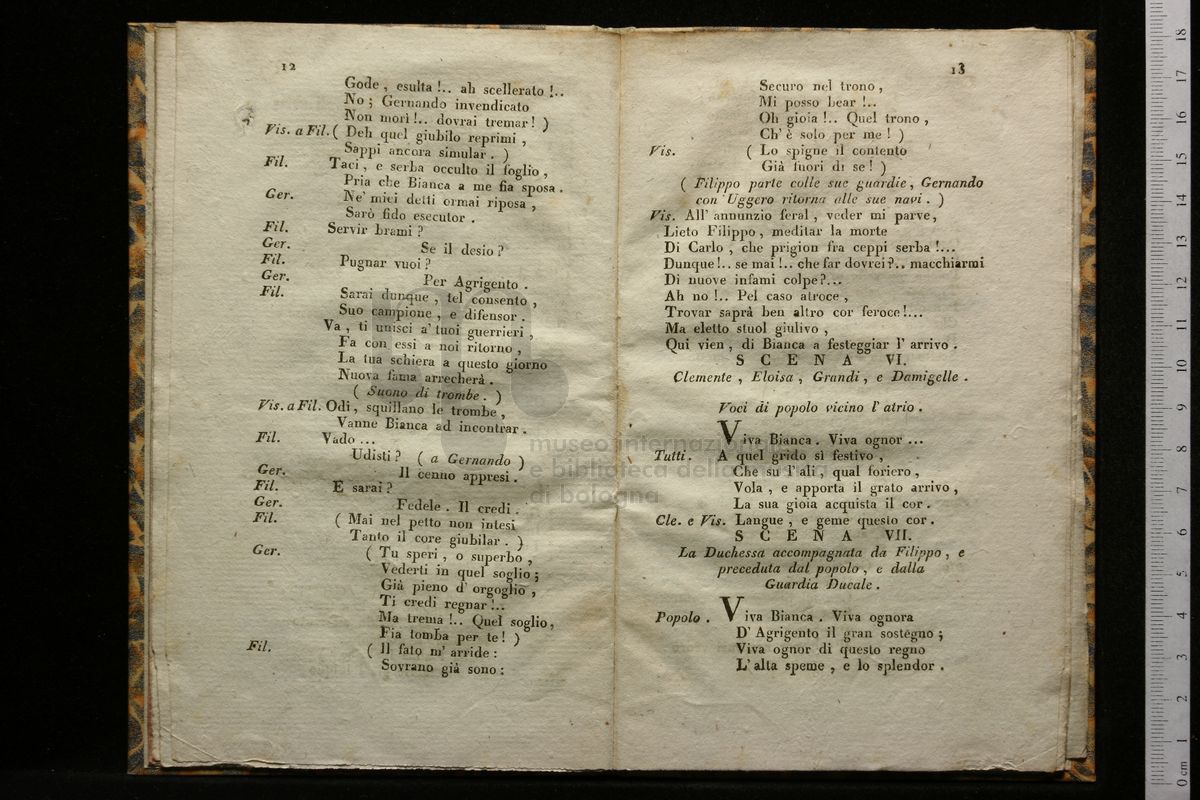 12
Gode, esulta!.. ah scellerato!..
No; Gernando invendicato
Non morì!.. dovrai tremar! )
Vis. a Fil. ( Deh quel giubilo reprimi,
Sappi ancora simular. )
Fil. Taci, e serba occulto il foglio,
Pria che Bianca a me fia sposa.
Ger. Ne' miei detti ormai riposa,
Sarò fido esecutor.
Fil. Servir brami?
Ger. Se il desio?
Fil. Pugnar vuoi?
Ger. Per Agrigento.
Fil. Sarai dunque, tel consento,
Suo campione, e difensor.
Va, ti unisci a' tuoi guerrieri,
Fa con essi a noi ritorno,
La tua schiera a questo giorno
Nuova fama arrecherà.
( Suono di trombe. )
Vis. a Fil. Odi, squillano le trombe,
Vanne Bianca ad incontrar.
Fil. Vado ...
Udisti? ( a Gernando )
Ger. Il cenno appresi.
Fil. E sarai?
Ger. Fedele. Il credi.
Fil. ( Mai nel petto non intesi
Tanto il core giubilar. )
Ger. ( Tu speri, o superbo,
Vederti in quel soglio;
Già pieno d' orgoglio,
Ti credi regnar!..
Ma trema!.. Quel soglio,
Fia tomba per te! )
Fil. ( Il fato m' arride:
Sovrano già sono:
13
Securo nel trono,
Mi posso bear!..
Oh gioia!.. Quel trono,
Ch' è solo per me! )
Vis. ( Lo spigne il contento
Già fuori di se! )
( Filippo parte colle sue guardie, Gernando
con Uggero ritorna alle sue navi. )
Vis. All' annunzio feral, veder mi parve,
Lieto Filippo, meditar la morte
Di Carlo, che prigion fra ceppi serba!...
Dunque!.. se mai!.. che far dovrei?.. macchiarmi
Di nuove infami colpe?...
Ah no!.. Pel caso atroce,
Trovar saprà ben altro cor feroce!...
Ma eletto stuol giulivo,
Qui vien, di Bianca a festeggiar l' arrivo.
SCENA VI.
Clemente, Eloisa, Grandi, e Damigelle.
Voci di popolo vicino l' atrio.
Viva Bianca. Viva ognor ...
Tutti. A quel grido sì festivo,
Che su l' ali, qual foriero,
Vola, e apporta il grato arrivo,
La sua gioia acquista il cor.
Cle. e Vis. Langue, e geme questo cor.
SCENA VII.
La Duchessa accompagnata da Filippo, e
preceduta dal popolo, e dalla
Guardia Ducale.
Popolo. Viva Bianca. Viva ognora
D' Agrigento il gran sostegno;
Viva ognor di questo regno
L' alta speme, e lo splendor.
museo internazionale
e biblioteca della musica
di bologna
0 cm 1 2 3 4 5 6 7 8 9 10 11 12 13 14 15 16 17 18